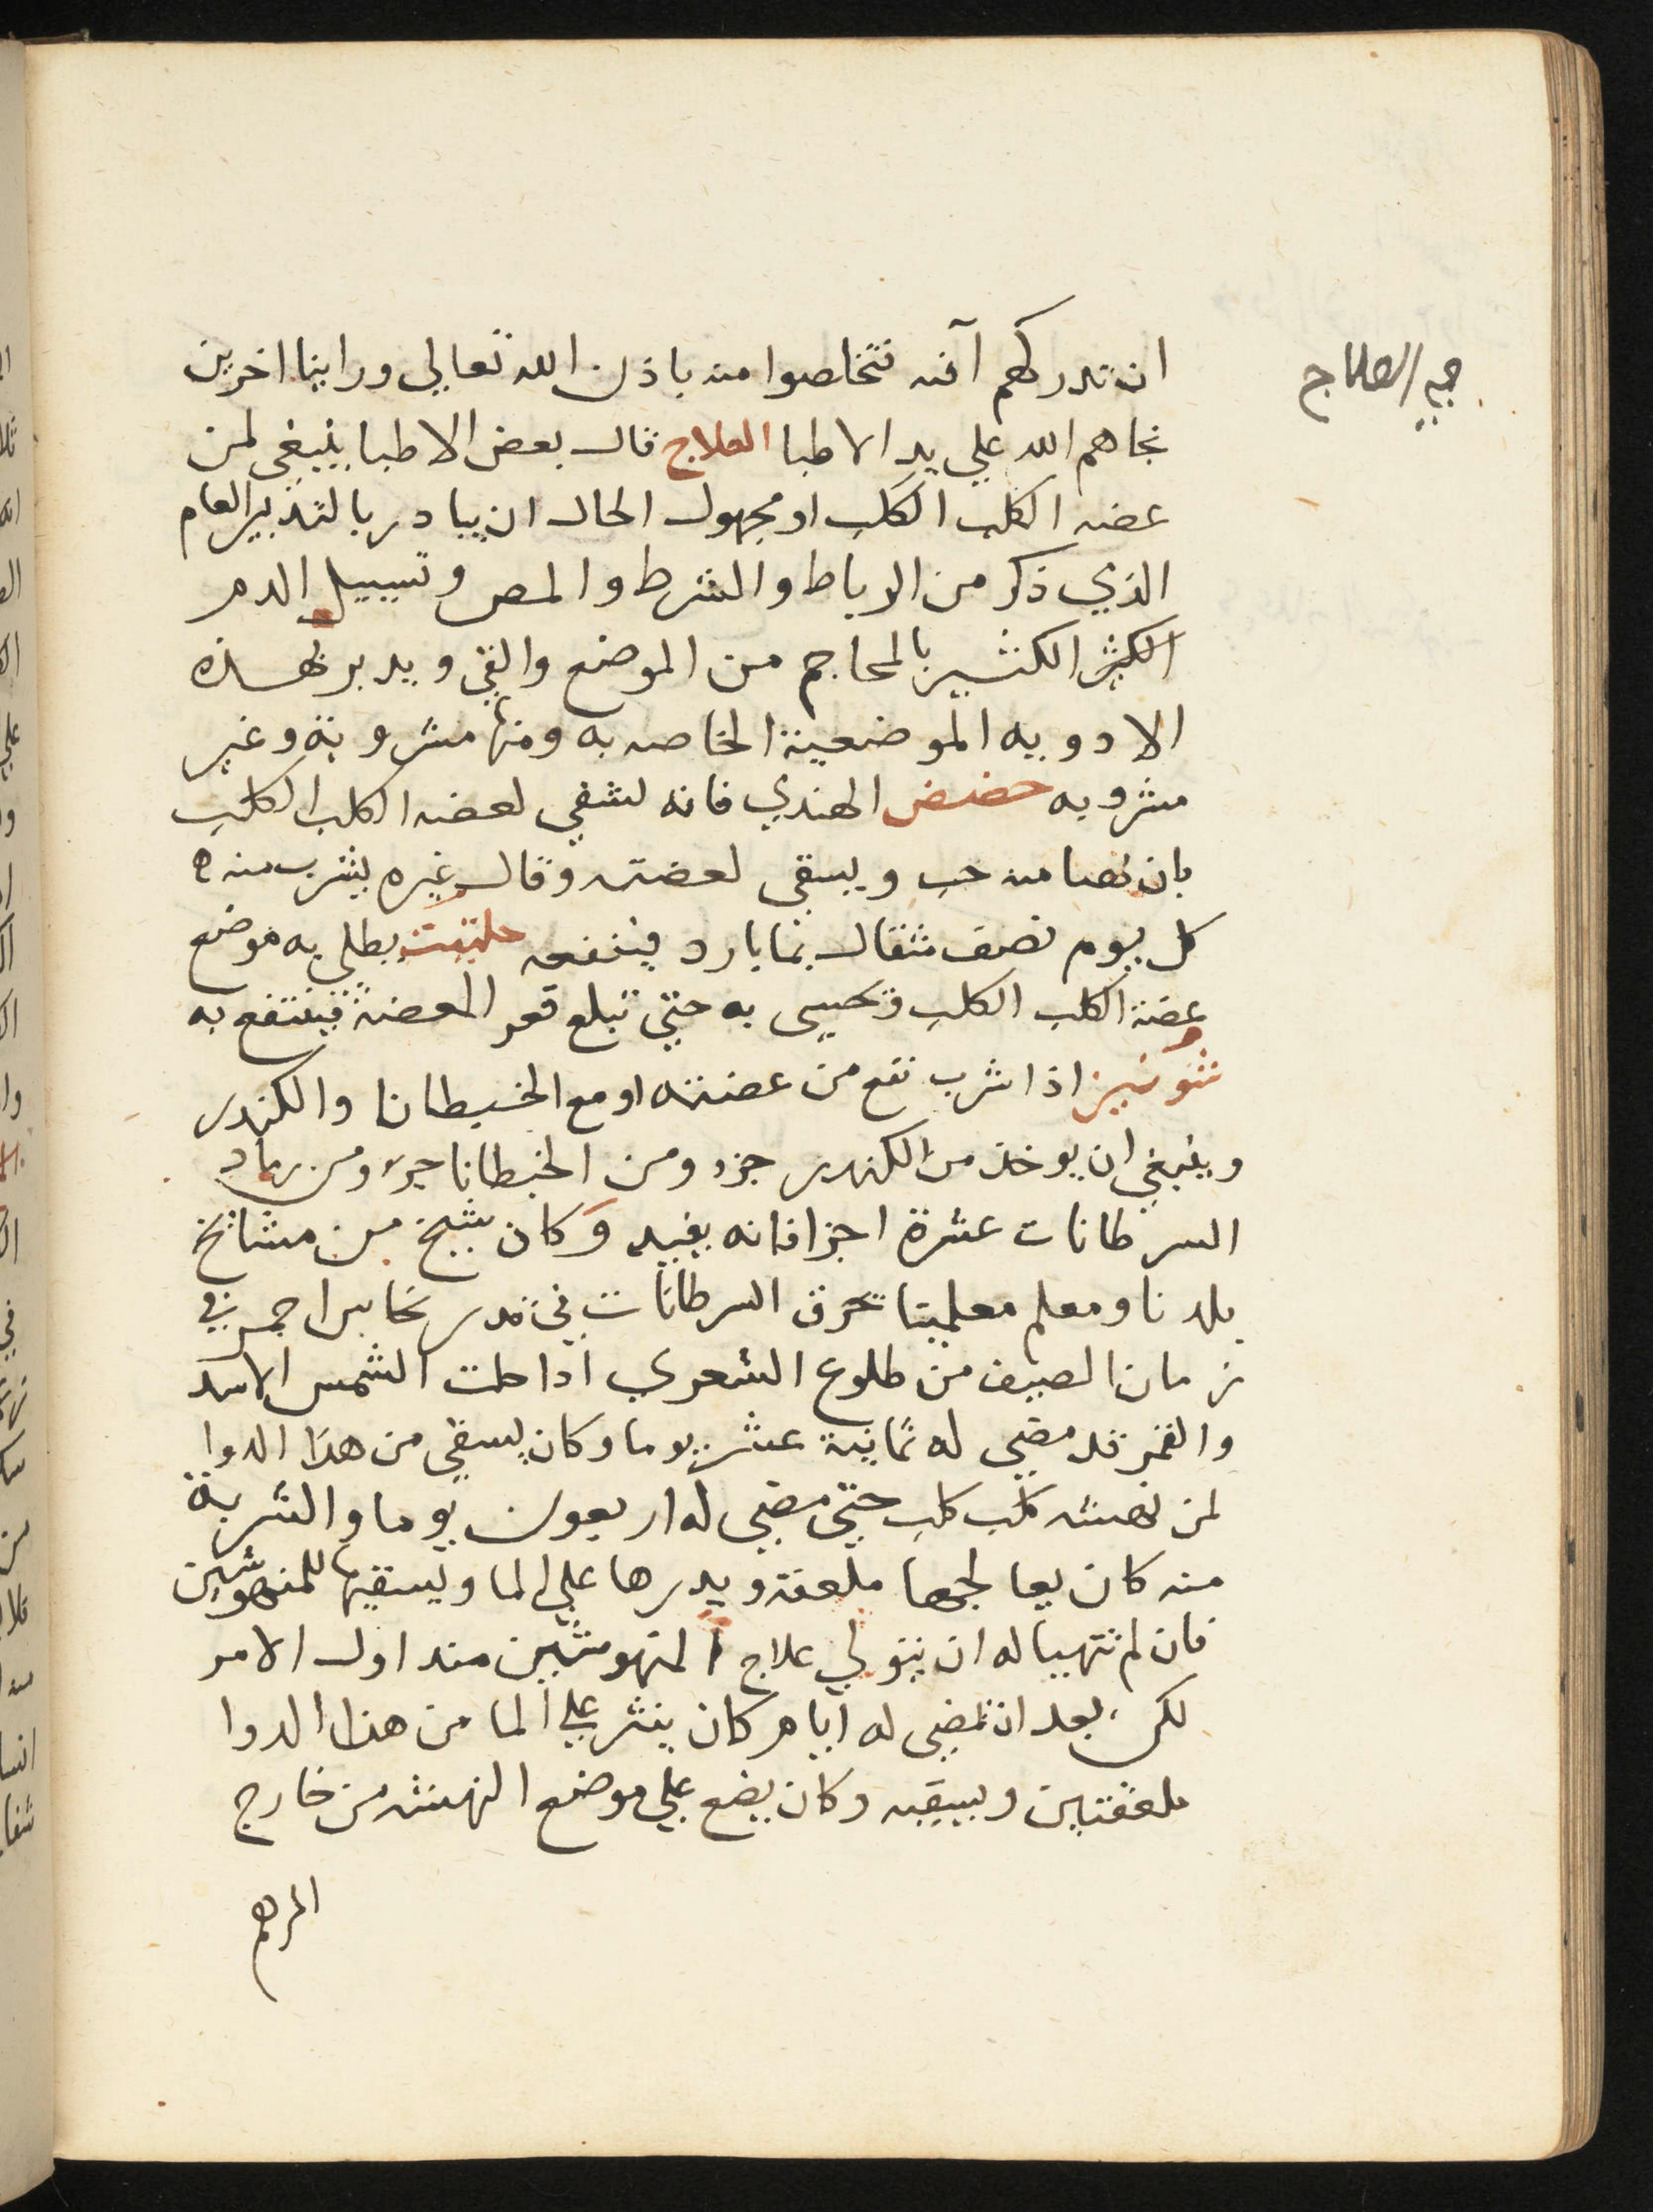 في العلاج
ان تدركهم آفته فتخلصوا منه باذن الله تعالي وراينا اخرين
نجاهم الله علي يد الاطبا العلاج قال بعض الاطبا ينبغي لمن
عضه الكلب الكلب او مجهول الحال ان يبادر بالتدبير العام
الذي ذكر من الرباط والشرط والمص وتسييل الدم
الكثير الكثير بالمحاجم من الموضع والقي ويدبر بهذه
الادويه الموضعية الخاصه به ومنها مشروبة وغير
مشروبه حضض الهندي فانه يشفي لعضه الكلب الكلب
بان منه حب ويسقي لعضته وقال غيره يشرب منه
كل يوم نصف مثقال بما بارد فينفعه حلتيت يطلي به موضع
عضة الكلب الكلب وتحسي به حتي تبلغ قعر العضة فينتفع به
شونيز اذا شرب نفع من عضته او مع الخنطيانا والكندر
وينبغي ان يوخذ من الكندر جزو ومن الخنطيانا جزو ومن رماد
السرطانات عشرة اجزا فانه يفيد وكان شيخ من مشائخ
بلدنا ومعلم معلمينا تحرق السرطانات في قدر نحاس احمر في
زمان الصيف من طلوع الشعري اذا حلت الشمس الاسد
والقمر قد مضي له ثمانية عشر يوما وكان يسقي من هذا الدوا
لمن نهشه كلب كلب حتي مضي له اربعون يوما والشربة
منه كان يعالجها ملعقة ويدرها علي الما ويسقيها للمنهوشين
فان لم تتهيا له ان يتولي علاج المنهوشين منذ اول الامر
لكن بعد ان تمضي له ايام كان ينثر علي الما من هذا الدوا
ملعقتين ويسقيه وكان يضع علي موضع النهشه من خارج
المرهم